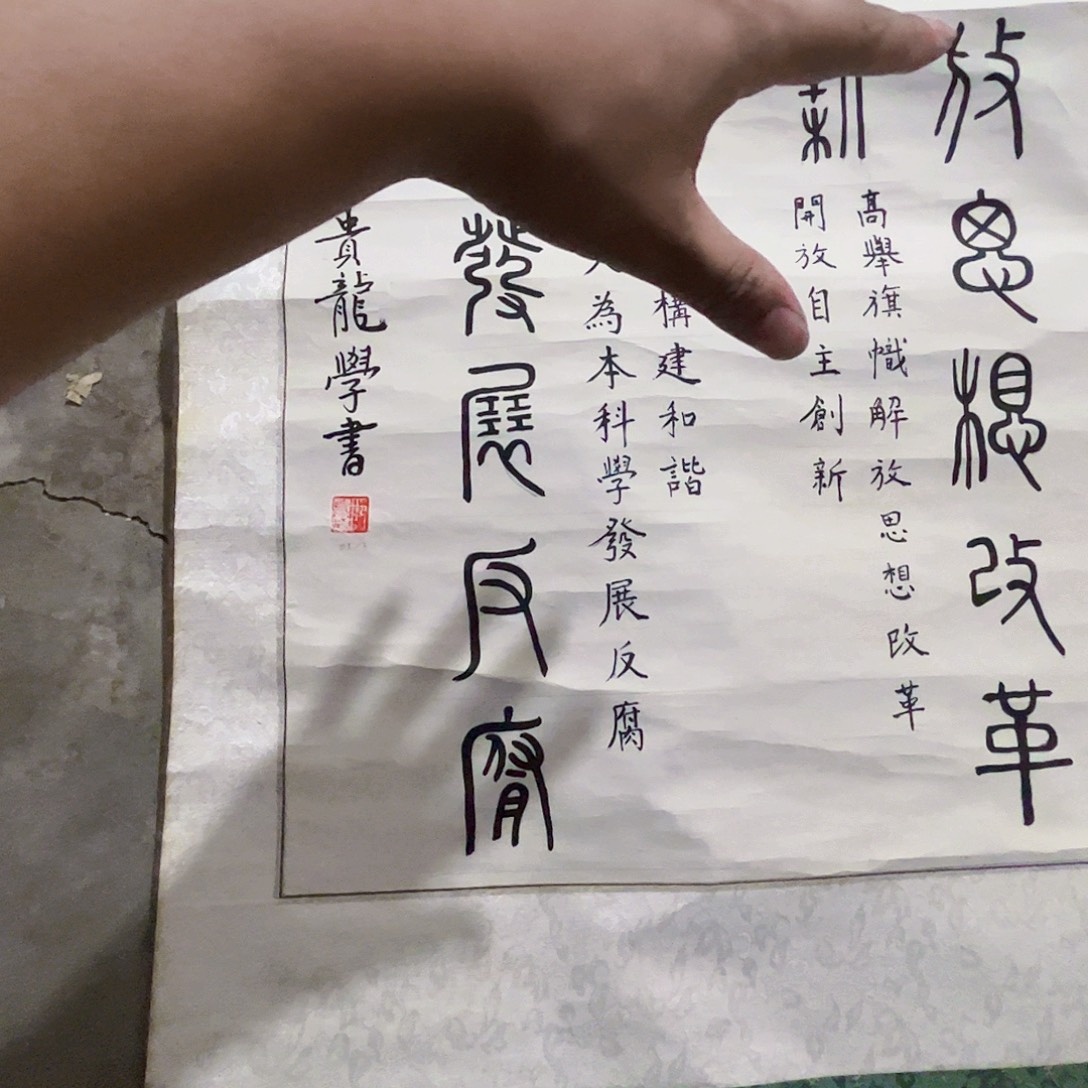 放思想改革
高舉旗幟解放思想改革
開放自主創新
新
構建和諧
為本科學發展反腐
發展反腐
貴龍學書